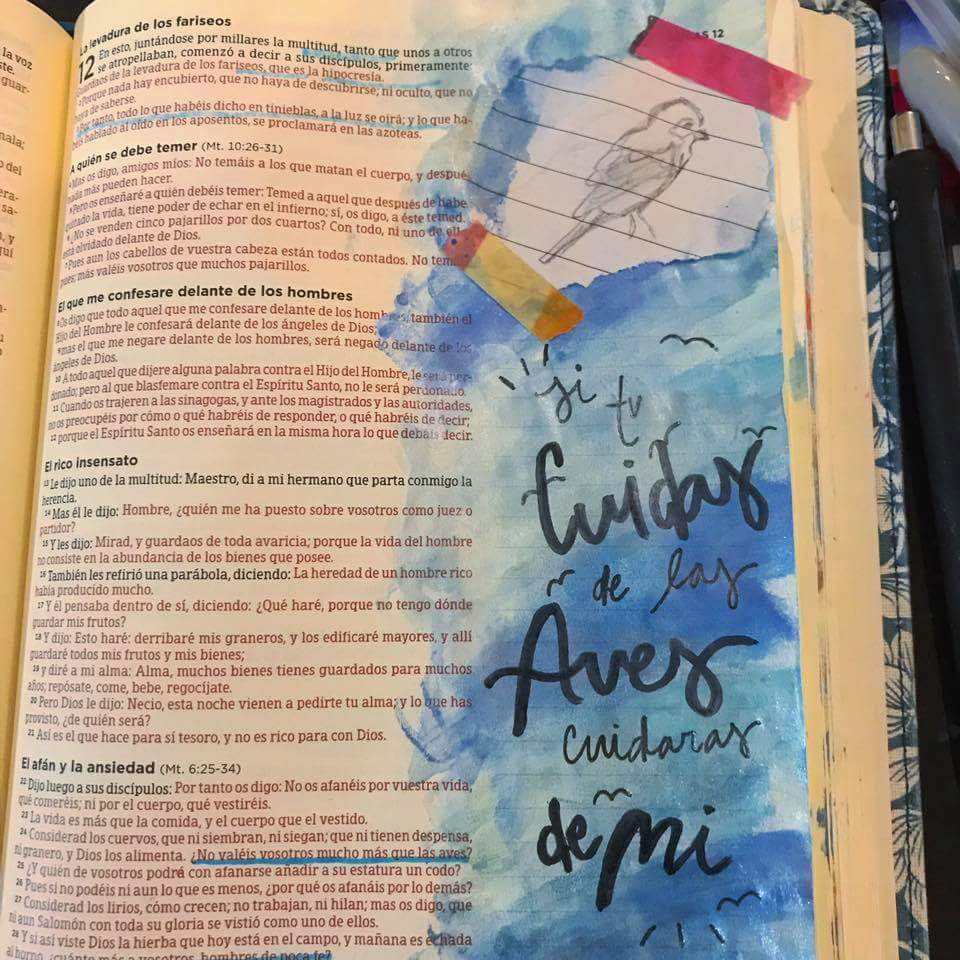 la voz
ste.
guar-
nala;
o del
era-
sa-
n, y
quí
La levadura de los fariseos
12 En esto, juntándose por millares la multitud, tanto que unos a otros
se atropellaban, comenzó a decir a sus discípulos, primeramente:
Guardaos de la levadura de los fariseos, que es la hipocresía.
2 Porque nada hay encubierto, que no haya de descubrirse; ni oculto, que no
haya de saberse.
3 Por tanto, todo lo que habéis dicho en tinieblas, a la luz se oirá; y lo que ha-
béis hablado al oído en los aposentos, se proclamará en las azoteas.
A quién se debe temer (Mt. 10:26-31)
4 Mas os digo, amigos míos: No temáis a los que matan el cuerpo, y despué
nada más pueden hacer.
5 Pero os enseñaré a quién debéis temer: Temed a aquel que después de habe
quitado la vida, tiene poder de echar en el infierno; sí, os digo, a éste temed.
6 ¿No se venden cinco pajarillos por dos cuartos? Con todo, ni uno de ell
está olvidado delante de Dios.
7 Pues aun los cabellos de vuestra cabeza están todos contados. No tem
pues; más valéis vosotros que muchos pajarillos.
El que me confesare delante de los hombres
8 Os digo que todo aquel que me confesare delante de los hombres, también el
Hijo del Hombre le confesará delante de los ángeles de Dios;
9 mas el que me negare delante de los hombres, será negado delante de los
ángeles de Dios.
10 A todo aquel que dijere alguna palabra contra el Hijo del Hombre, le será per-
donado; pero al que blasfemare contra el Espíritu Santo, no le será perdonado.
11 Cuando os trajeren a las sinagogas, y ante los magistrados y las autoridades,
no os preocupéis por cómo o qué habréis de responder, o qué habréis de decir;
12 porque el Espíritu Santo os enseñará en la misma hora lo que debáis decir.
El rico insensato
13 Le dijo uno de la multitud: Maestro, di a mi hermano que parta conmigo la
herencia.
14 Mas él le dijo: Hombre, ¿quién me ha puesto sobre vosotros como juez o
partidor?
15 Y les dijo: Mirad, y guardaos de toda avaricia; porque la vida del hombre
no consiste en la abundancia de los bienes que posee.
16 También les refirió una parábola, diciendo: La heredad de un hombre rico
había producido mucho.
17 Y él pensaba dentro de sí, diciendo: ¿Qué haré, porque no tengo dónde
guardar mis frutos?
18 Y dijo: Esto haré: derribaré mis graneros, y los edificaré mayores, y allí
guardaré todos mis frutos y mis bienes;
19 y diré a mi alma: Alma, muchos bienes tienes guardados para muchos
años; repósate, come, bebe, regocíjate.
20 Pero Dios le dijo: Necio, esta noche vienen a pedirte tu alma; y lo que has
provisto, ¿de quién será?
21 Así es el que hace para sí tesoro, y no es rico para con Dios.
El afán y la ansiedad (Mt. 6:25-34)
22 Dijo luego a sus discípulos: Por tanto os digo: No os afanéis por vuestra vida,
qué comeréis; ni por el cuerpo, qué vestiréis.
23 La vida es más que la comida, y el cuerpo que el vestido.
24 Considerad los cuervos, que ni siembran, ni siegan; que ni tienen despensa,
ni granero, y Dios los alimenta. ¿No valéis vosotros mucho más que las aves?
25 ¿Y quién de vosotros podrá con afanarse añadir a su estatura un codo?
26 Pues si no podéis ni aun lo que es menos, ¿por qué os afanáis por lo demás?
27 Considerad los lirios, cómo crecen; no trabajan, ni hilan; mas os digo, que
ni aun Salomón con toda su gloria se vistió como uno de ellos.
28 Y si así viste Dios la hierba que hoy está en el campo, y mañana es echada
al horno, ¿cuánto más a vosotros, hombres de poca fe?
S 12
si
tu
Cuidas
de las
Aves
cuidaras
de mi